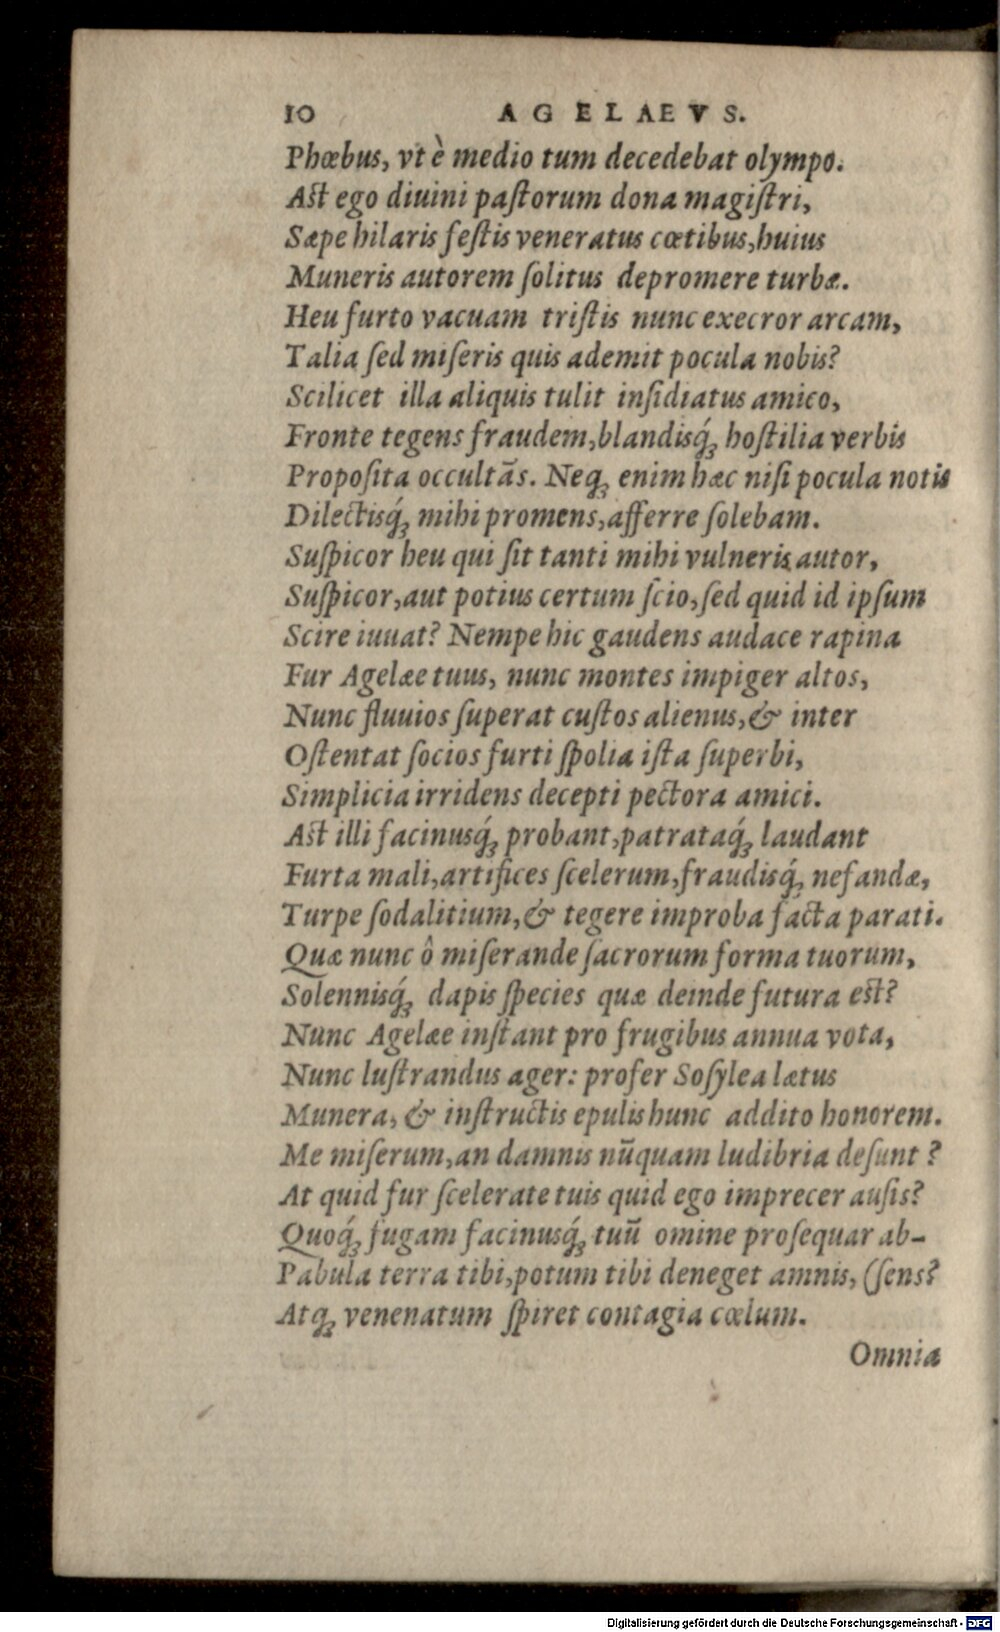 10 AGELAEVS.
Phœbus, vt è medio tum decedebat olympo.
Ast ego diuini pastorum dona magistri,
Sæpe hilaris festis veneratus cœtibus, huius
Muneris autorem solitus depromere turbæ.
Heu furto vacuam tristis nunc execror arcam,
Talia sed miseris quis ademit pocula nobis?
Scilicet illa aliquis tulit insidiatus amico,
Fronte tegens fraudem, blandisq́ꝫ hostilia verbis
Proposita occultãs. Neqꝫ enim hæc nisi pocula notis
Dilectisq́ꝫ mihi promens, afferre solebam.
Suspicor heu qui sit tanti mihi vulneris autor,
Suspicor, aut potius certum scio, sed quid id ipsum
Scire iuuat? Nempe hic gaudens audace rapina
Fur Agelæe tuus, nunc montes impiger altos,
Nunc fluuios superat custos alienus, & inter
Ostentat socios furti spolia ista superbi,
Simplicia irridens decepti pectora amici.
Ast illi facinusq́ꝫ probant, patrataq́ꝫ laudant
Furta mali, artifices scelerum, fraudisq́ꝫ nefandæ,
Turpe sodalitium, & tegere improba facta parati.
Quæ nunc ô miserande sacrorum forma tuorum,
Solennisq́ꝫ dapis species quæ deinde futura est?
Nunc Agelæe instant pro frugibus annua vota,
Nunc lustrandus ager: profer Sosylea lætus
Munera, & instructis epulis hunc addito honorem.
Me miserum, an damnis nũquam ludibria desunt?
At quid fur scelerate tuis quid ego imprecer ausis?
Quoq́ꝫ fugam facinusq́ꝫ tuũ omine prosequar ab-
Pabula terra tibi, potum tibi deneget amnis, (sens?
Atqꝫ venenatum spiret contagia cœlum.
Omnia
Digitalisierung gefördert durch die Deutsche Forschungsgemeinschaft - DFG